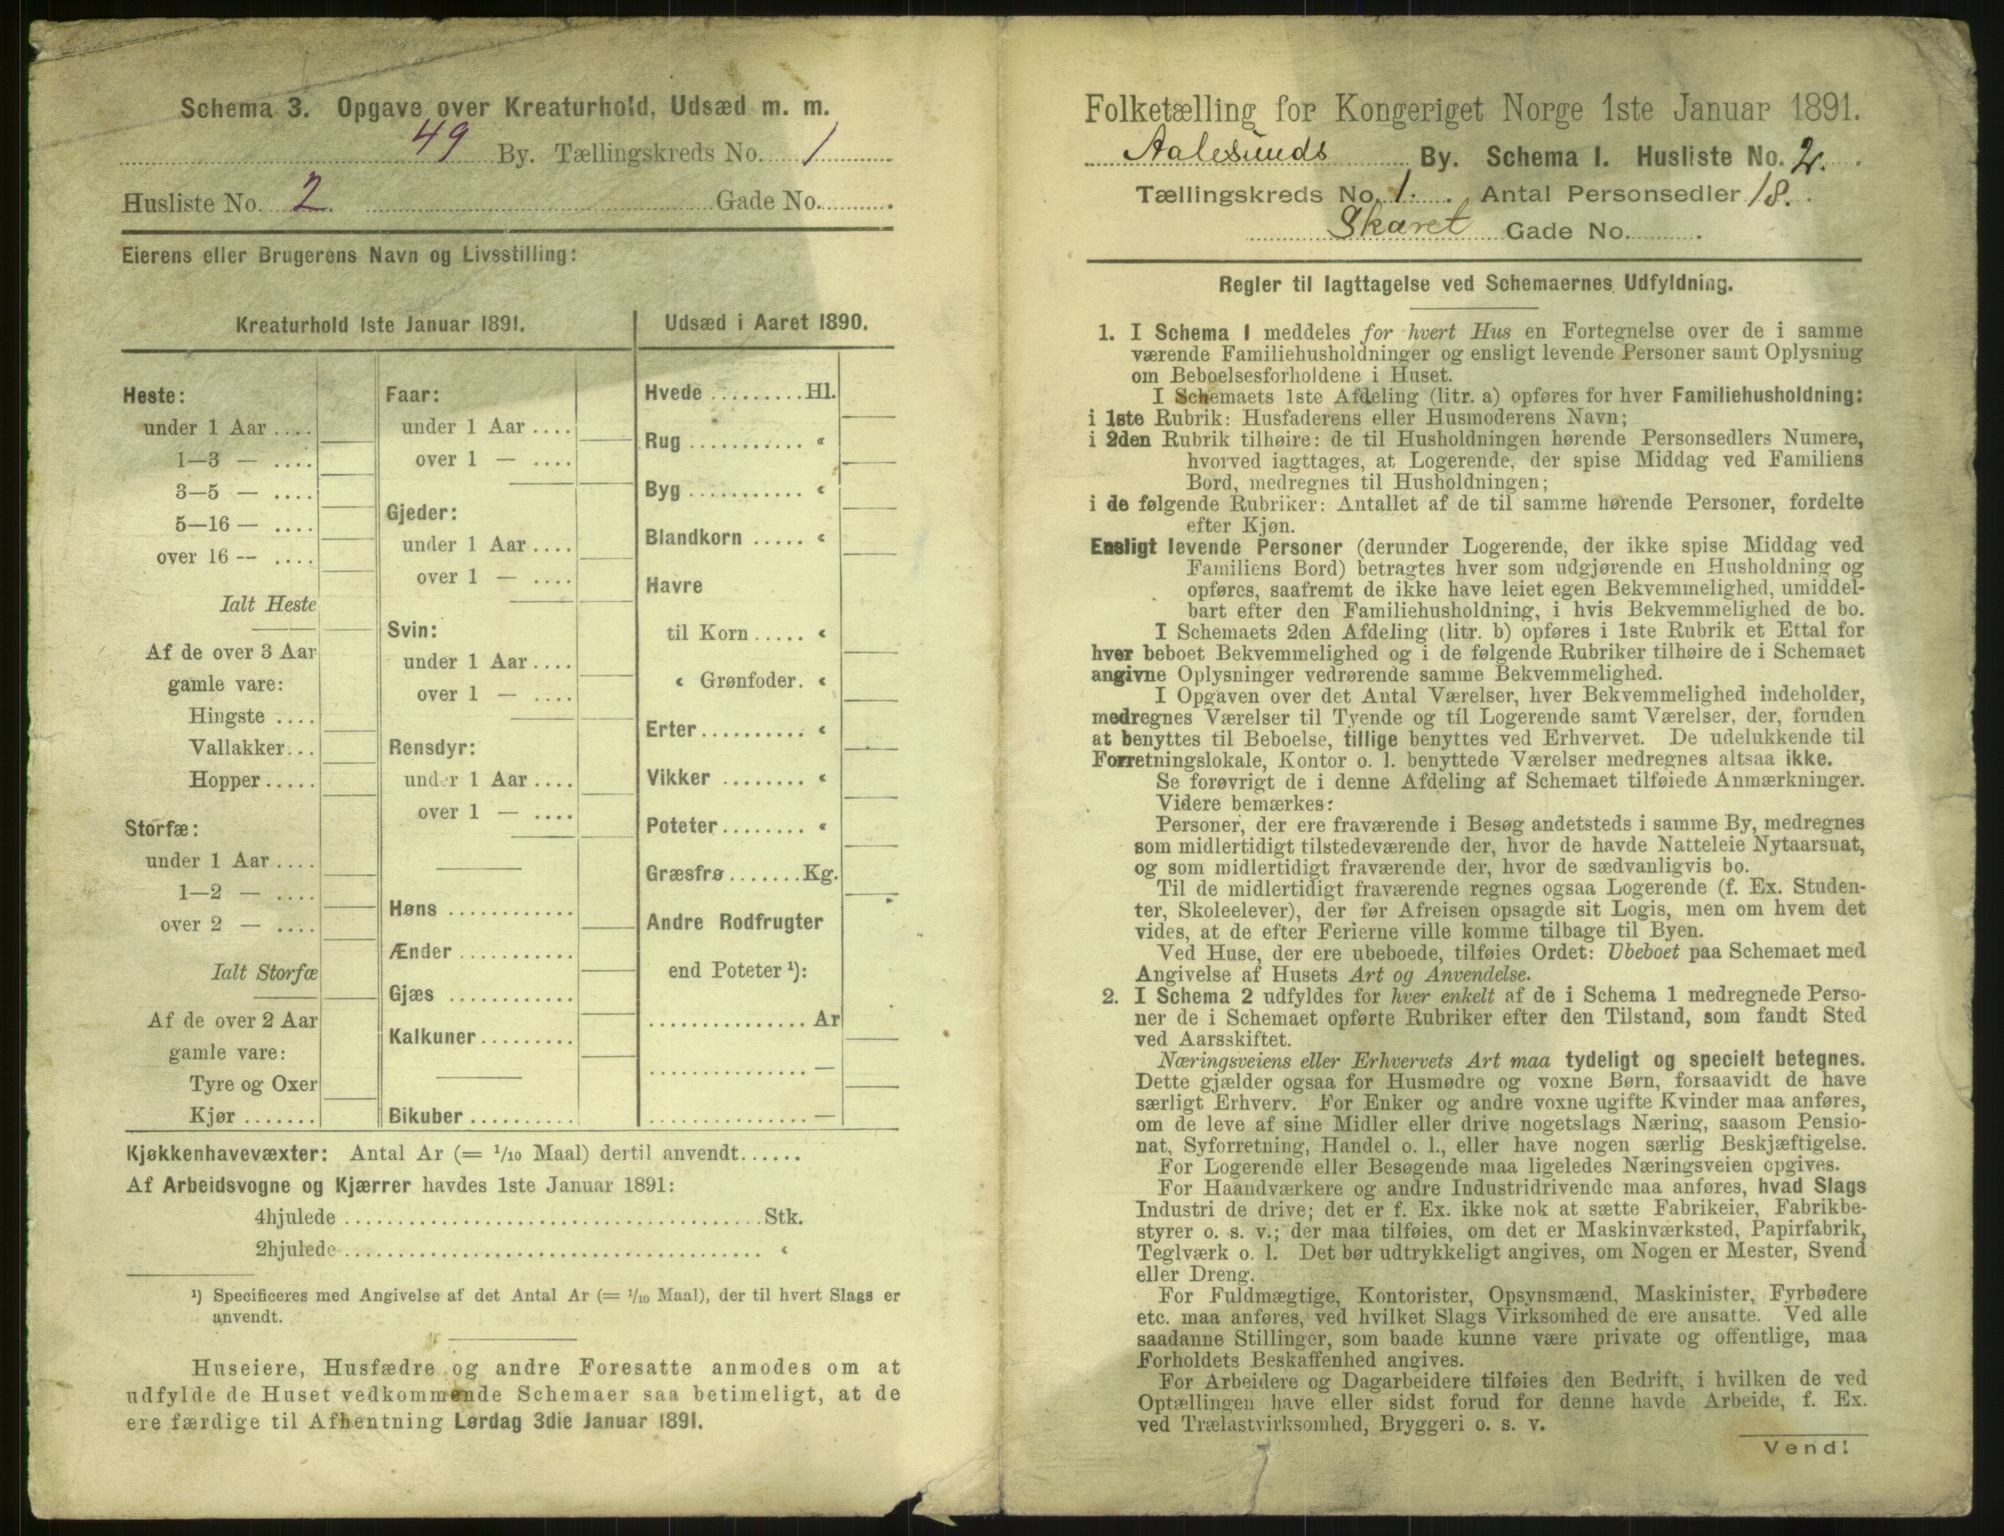 Schema 3. Opgave over Kreaturhold, Udsæd m. m.
49 By. Tællingskreds No. 1
Husliste No. 2. Gade No.
Eierens eller Brugerens Navn og Livsstilling:
Kreaturhold 1ste Januar 1891.
Heste:
under 1 Aar ....
1—3 — ....
3—5 — ....
5—16 — ....
over 16 -- ....
Ialt Heste
Af de over 3 Aar
gamle vare:
Hingste ....
Vallakker...
Hopper.....
Storfæ:
under 1 Aar ....
1—2 — ....
over 2 — ....
Ialt Storfæ
Af de over 2 Aar
gamle vare:
Tyre og Oxer
Kjør.......
Faar:
under 1 Aar ....
over 1 — ....
Gjeder:
under 1 Aar ....
over 1 — ....
Svin:
under 1 Aar ....
over 1 — ....
Rensdyr:
under 1 Aar ....
over 1 — ....
Høns ............
Ænder ...........
Gjæs ............
Kalkuner.........
Bikuber ..........
Udsæd i Aaret 1890.
Hvede .........Hl.
Rug ........... «
Byg ........... «
Blandkorn ..... «
Havre
til Korn ..... «
« Grønfoder. «
Erter.......... «
Vikker ......... «
Poteter........ «
Græsfrø.......Kg.
Andre Rodfrugter
end Poteter ¹):
............... Ar
............... —
............... —
Kjøkkenhavevæxter: Antal Ar (= 1/10 Maal) dertil anvendt......
Af Arbeidsvogne og Kjærrer havdes 1ste Januar 1891:
4hjulede ........................................Stk.
2hjulede........................................ «
¹) Specificeres med Angivelse af det Antal Ar (= 1/10 Maal), der til hvert Slags er
anvendt.
Huseiere, Husfædre og andre Foresatte anmodes om at
udfylde de Huset vedkommende Schemaer saa betimeligt, at de
ere færdige til Afhentning Lørdag 3die Januar 1891.
Folketælling for Kongeriget Norge 1ste Januar 1891.
Aalesunds By. Schema 1. Husliste No. 2.
Tællingskreds No. 1. Antal Personsedler 18.
Skaret Gade No.
Regler til Iagttagelse ved Schemaernes Udfyldning.
1. I Schema 1 meddeles for hvert Hus en Fortegnelse over de i samme
værende Familiehusholdninger og ensligt levende Personer samt Oplysning
om Beboelsesforholdene i Huset.
I Schemaets 1ste Afdeling (litr. a) opføres for hver Familiehusholdning:
i 1ste Rubrik: Husfaderens eller Husmoderens Navn;
i 2den Rubrik tilhøire: de til Husholdningen hørende Personsedlers Numere,
hvorved iagttages, at Logerende, der spise Middag ved Familiens
Bord, medregnes til Husholdningen;
i de følgende Rubriker: Antallet af de til samme hørende Personer, fordelte
efter Kjøn.
Ensligt levende Personer (derunder Logerende, der ikke spise Middag ved
Familiens Bord) betragtes hver som udgjørende en Husholdning og
opføres, saafremt de ikke have leiet egen Bekvemmelighed, umiddel-
bart efter den Familiehusholdning, i hvis Bekvemmelighed de bo.
I Schemaets 2den Afdeling (litr. b) opføres i 1ste Rubrik et Ettal for
hver beboet Bekvemmelighed og i de følgende Rubriker tilhøire de i Schemaet
angivne Oplysninger vedrørende samme Bekvemmelighed.
I Opgaven over det Antal Værelser, hver Bekvemmelighed indeholder,
medregnes Værelser til Tyende og til Logerende samt Værelser, der, foruden
at benyttes til Beboelse, tillige benyttes ved Erhvervet. De udelukkende til
Forretningslokale, Kontor o. l. benyttede Værelser medregnes altsaa ikke.
Se forøvrigt de i denne Afdeling af Schemaet tilføiede Anmærkninger.
Videre bemærkes:
Personer, der ere fraværende i Besøg andetsteds i samme By, medregnes
som midlertidigt tilstedeværende der, hvor de havde Natteleie Nytaarsnat,
og som midlertidigt fraværende der, hvor de sædvanligvis bo.
Til de midlertidigt fraværende regnes ogsaa Logerende (f. Ex. Studen-
ter, Skoleelever), der før Afreisen opsagde sit Logis, men om hvem det
vides, at de efter Ferierne ville komme tilbage til Byen.
Ved Huse, der ere ubeboede, tilføies Ordet: Ubeboet paa Schemaet med
Angivelse af Husets Art og Anvendelse.
2. I Schema 2 udfyldes for hver enkelt af de i Schema 1 medregnede Perso-
ner de i Schemaet opførte Rubriker efter den Tilstand, som fandt Sted
ved Aarsskiftet.
Næringsveiens eller Erhvervets Art maa tydeligt og specielt betegnes.
Dette gjælder ogsaa for Husmødre og voxne Børn, forsaavidt de have
særligt Erhverv. For Enker og andre voxne ugifte Kvinder maa anføres,
om de leve af sine Midler eller drive nogetslags Næring, saasom Pensio-
nat, Syforretning, Handel o. l., eller have nogen særlig Beskjæftigelse.
For Logerende eller Besøgende maa ligeledes Næringsveien opgives.
For Haandværkere og andre Industridrivende maa anføres, hvad Slags
Industri de drive; det er f. Ex. ikke nok at sætte Fabrikeier, Fabrikbe-
styrer o. s. v.; der maa tilføies, om det er Maskinværksted, Papirfabrik,
Teglværk o. l. Det bør udtrykkeligt angives, om Nogen er Mester, Svend
eller Dreng.
For Fuldmægtige, Kontorister, Opsynsmænd, Maskinister, Fyrbødere
etc. maa anføres, ved hvilket Slags Virksomhed de ere ansatte. Ved alle
saadanne Stillinger, som baade kunne være private og offentlige, maa
Forholdets Beskaffenhed angives.
For Arbeidere og Dagarbeidere tilføies den Bedrift, i hvilken de ved
Optællingen have eller sidst forud for denne havde Arbeide, f. Ex.
ved Trælastvirksomhed, Bryggeri o. s. v.
Vend!